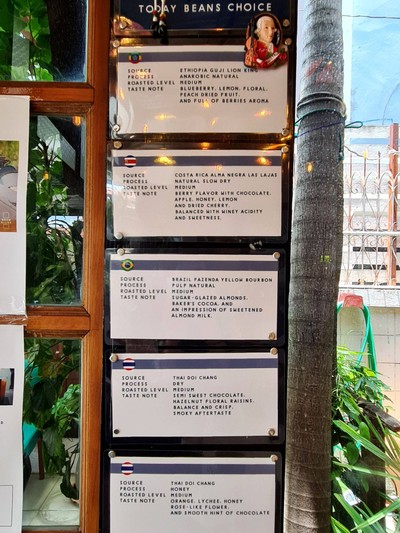 TODAY BEANS CHOICE
SOURCE ETHIOPIA GUJI LION KING
PROCESS ANAROBIC NATURAL
ROASTED LEVEL MEDIUM
TASTE NOTE BLUEBERRY, LEMON, FLORAL,
PEACH DRIED FRUIT,
AND FULL OF BERRIES AROMA
SOURCE COSTA RICA ALMA NEGRA LAS LAJAS
PROCESS NATURAL SLOW DRY
ROASTED LEVEL MEDIUM
TASTE NOTE BERRY FLAVOR WITH CHOCOLATE,
APPLE, HONEY, LEMON
AND DRIED CHERRY,
BALANCED WITH WINEY ACIDITY
AND SWEETNESS.
SOURCE BRAZIL FAZENDA YELLOW BOURBON
PROCESS PULP NATURAL
ROASTED LEVEL MEDIUM
TASTE NOTE SUGAR-GLAZED ALMONDS,
BAKER'S COCOA, AND
AN IMPRESSION OF SWEETENED
ALMOND MILK.
SOURCE THAI DOI CHANG
PROCESS DRY
ROASTED LEVEL MEDIUM
TASTE NOTE SEMI SWEET CHOCOLATE,
HAZELNUT FLORAL RAISINS,
BALANCE AND CRISP,
SMOKY AFTERTASTE
SOURCE THAI DOI CHANG
PROCESS HONEY
ROASTED LEVEL MEDIUM
TASTE NOTE ORANGE, LYCHEE, HONEY
ROSE-LIKE FLOWER,
AND SMOOTH HINT OF CHOCOLATE